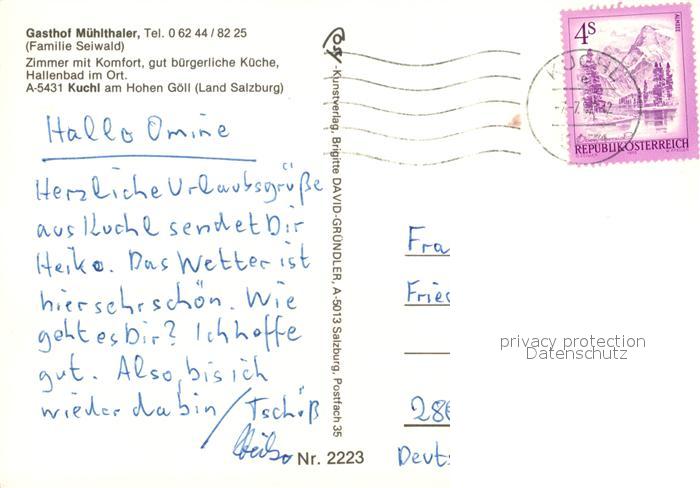 Gasthof Mühlthaler, Tel. 0 62 44 / 82 25
(Familie Seiwald)
Zimmer mit Komfort, gut bürgerliche Küche,
Hallenbad im Ort.
A-5431 Kuchl am Hohen Göll (Land Salzburg)
Hallo Omine
Herzliche Urlaubsgrüße
aus Kuchl sendet Dir
Heiko. Das Wetter ist
hier sehr schön. Wie
geht es Dir? Ich hoffe
gut. Also, bis ich
wieder da bin / Tschüß
Heiko
Nr. 2223
Cosy-Kunstverlag, Brigitte DAVID-GRÜNDLER, A-5013 Salzburg, Postfach 35
KUCHL
4 S
ALMSEE
REPUBLIK ÖSTERREICH
Fra
Fries
286
Deut
privacy protection
Datenschutz